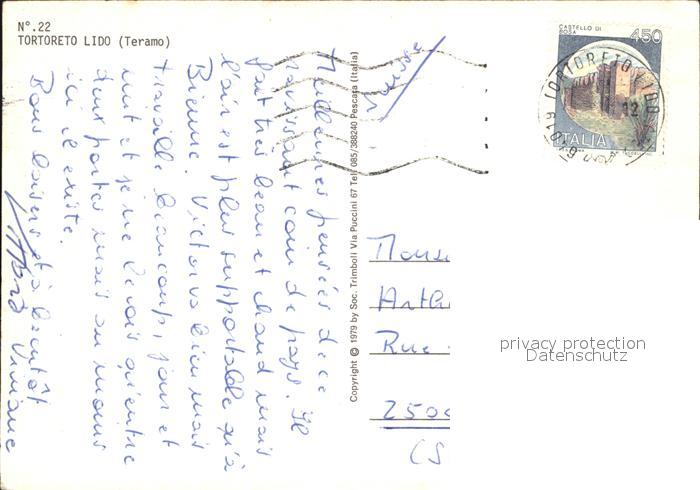 N°.22
TORTORETO LIDO (Teramo)
Meilleures pensées de ce
ravissant coin de pays. Il
fait très beau et chaud mais
l'air est plus supportable qu'à
Bienne. Victor va bien mais
travaille beaucoup, jour et
nuit et je ne le vois qu'entre
deux portes mais au moins
ici il existe.
Bons baisers et à bientôt
Viviane
Copyright © 1979 by Soc. Trimboli Via Puccini 67 Tel. 085/388240 Pescara (Italia)
Suisse
CASTELLO DI
ROSA
450
ITALIA
TORTORETO LIDO
12
Monsi
Arth
Rue
250
(S
privacy protection
Datenschutz